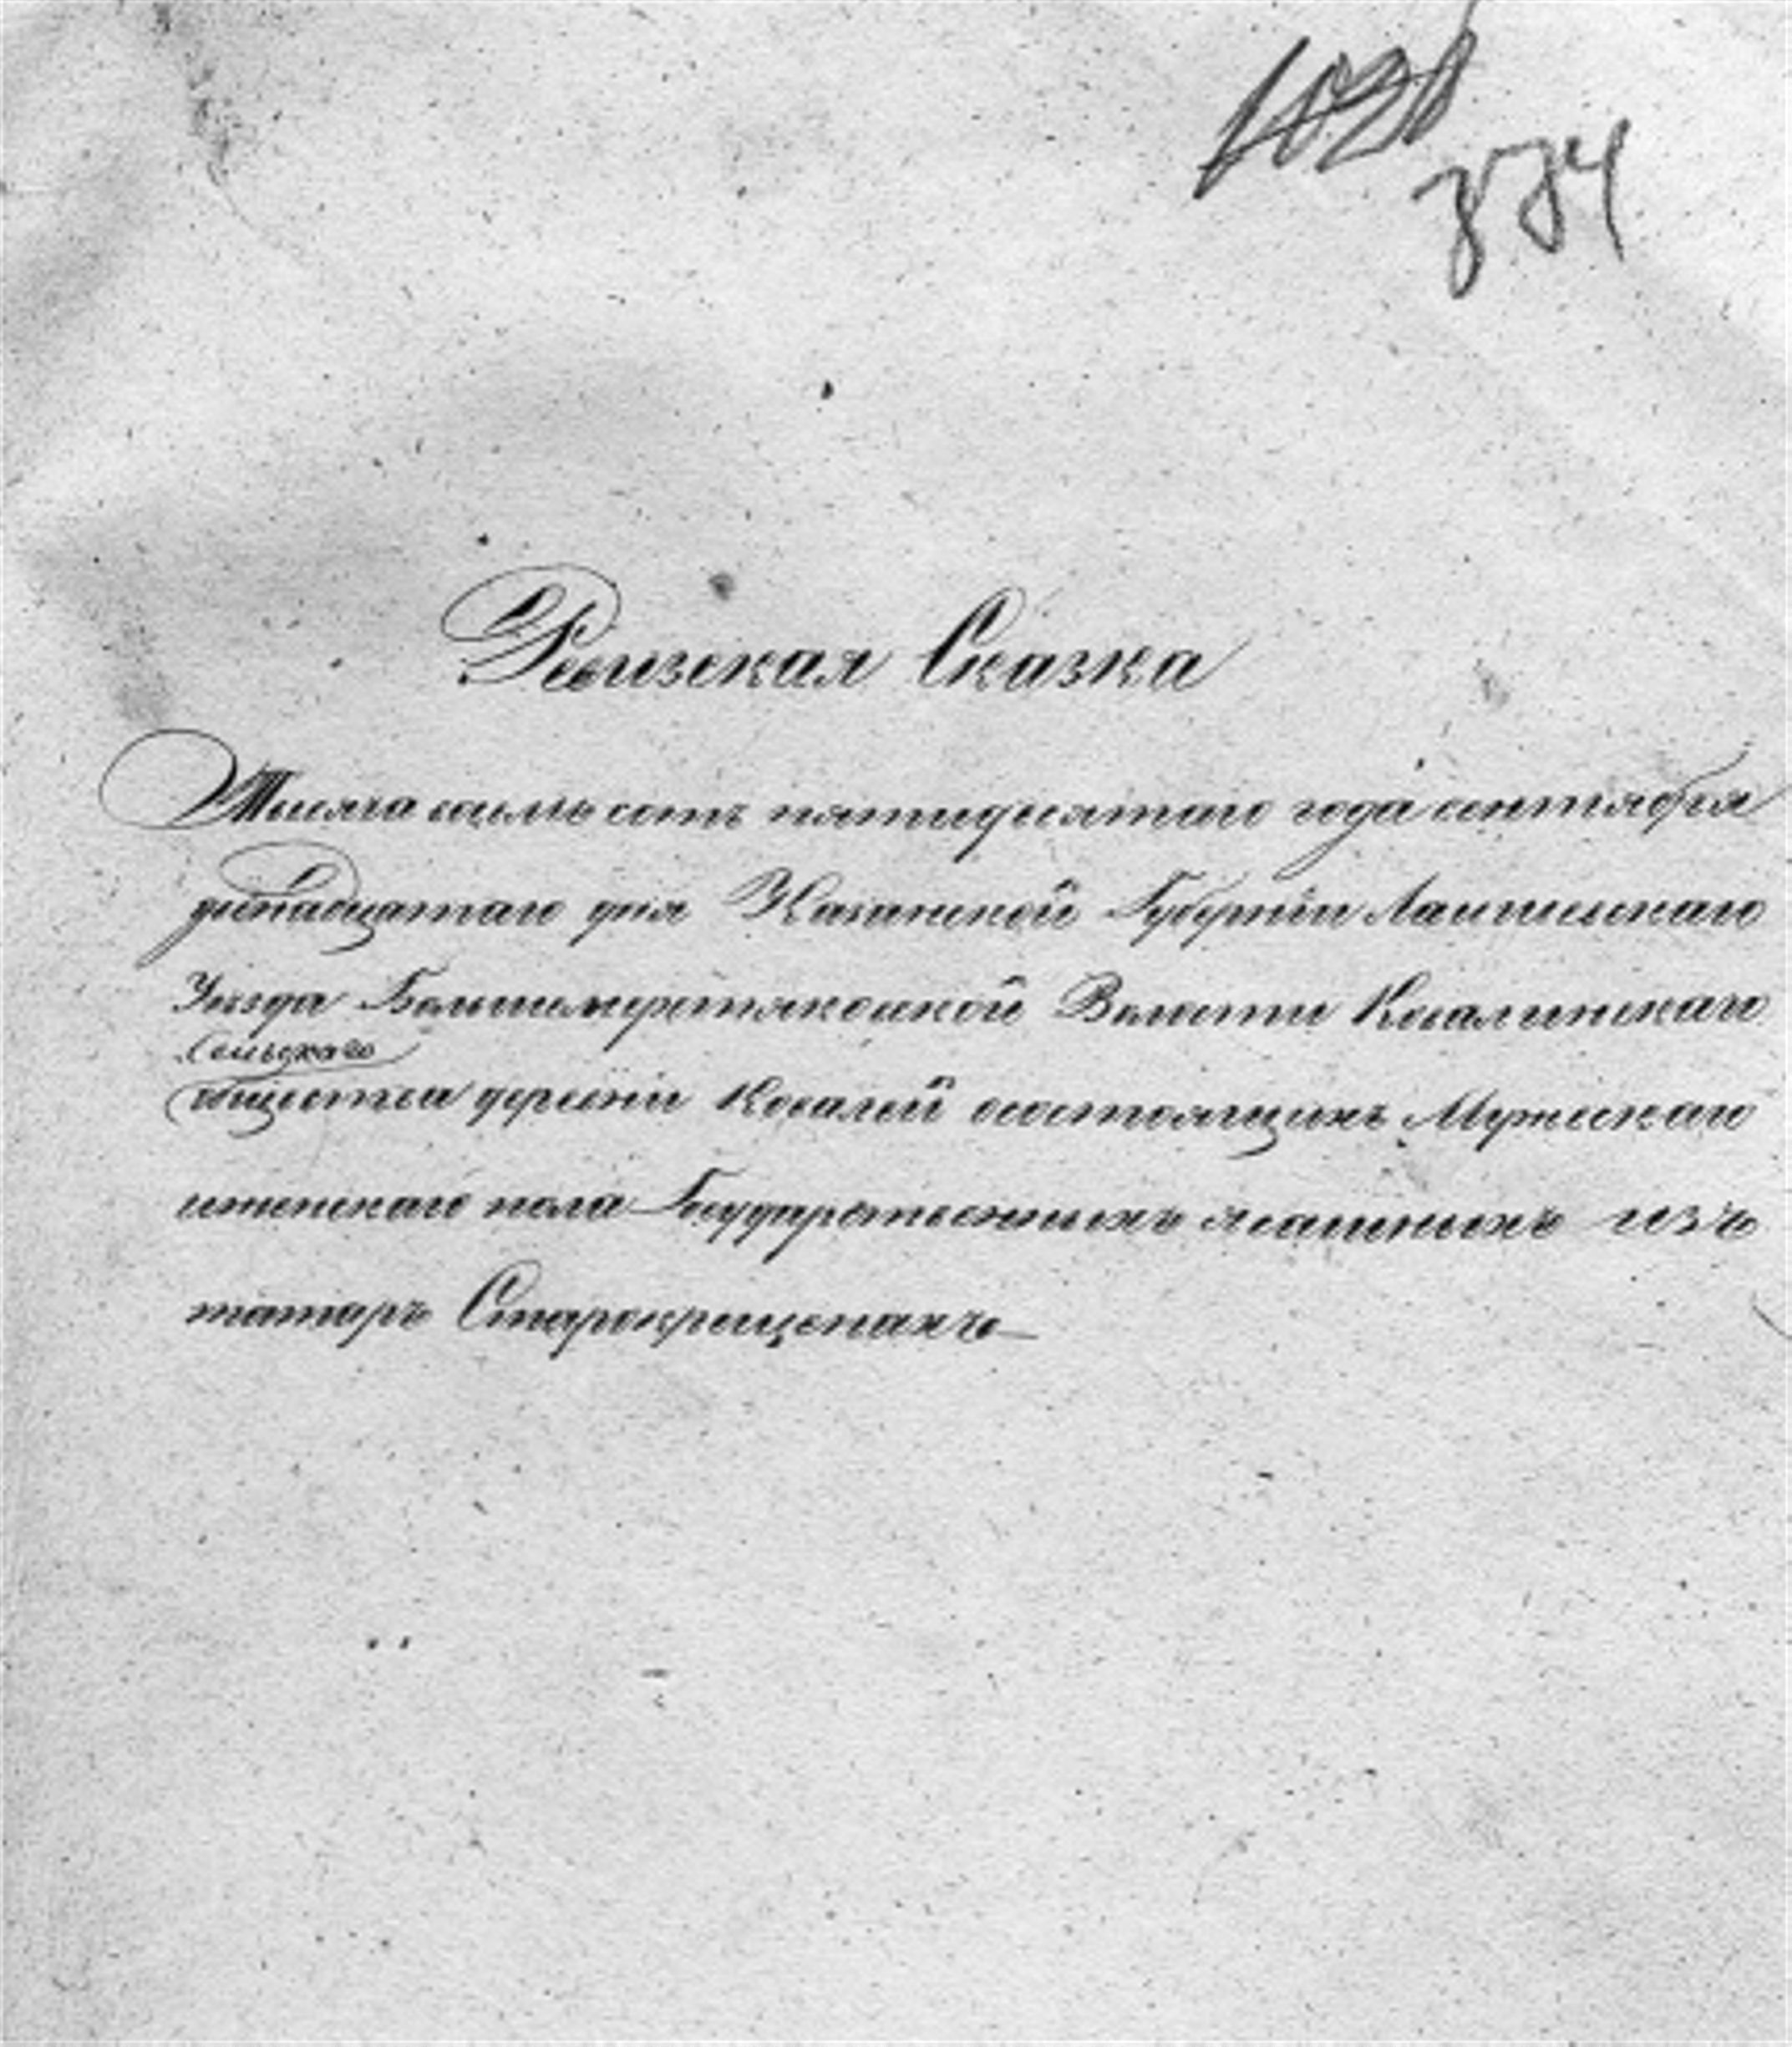 874
Ревизская Сказка
Тысяча восемь сотъ пятидесятаго года сентября
двенадцатаго дня Казанской Губернiи Лаишевскаго
Уезда Большемеретяковской Волости Ковалинскаго
Сельскаго
общества деревни Ковалей о состоящихъ Мужескаго
и женскаго пола Государственныхъ ясашныхъ изъ
татаръ Старокрещенахъ